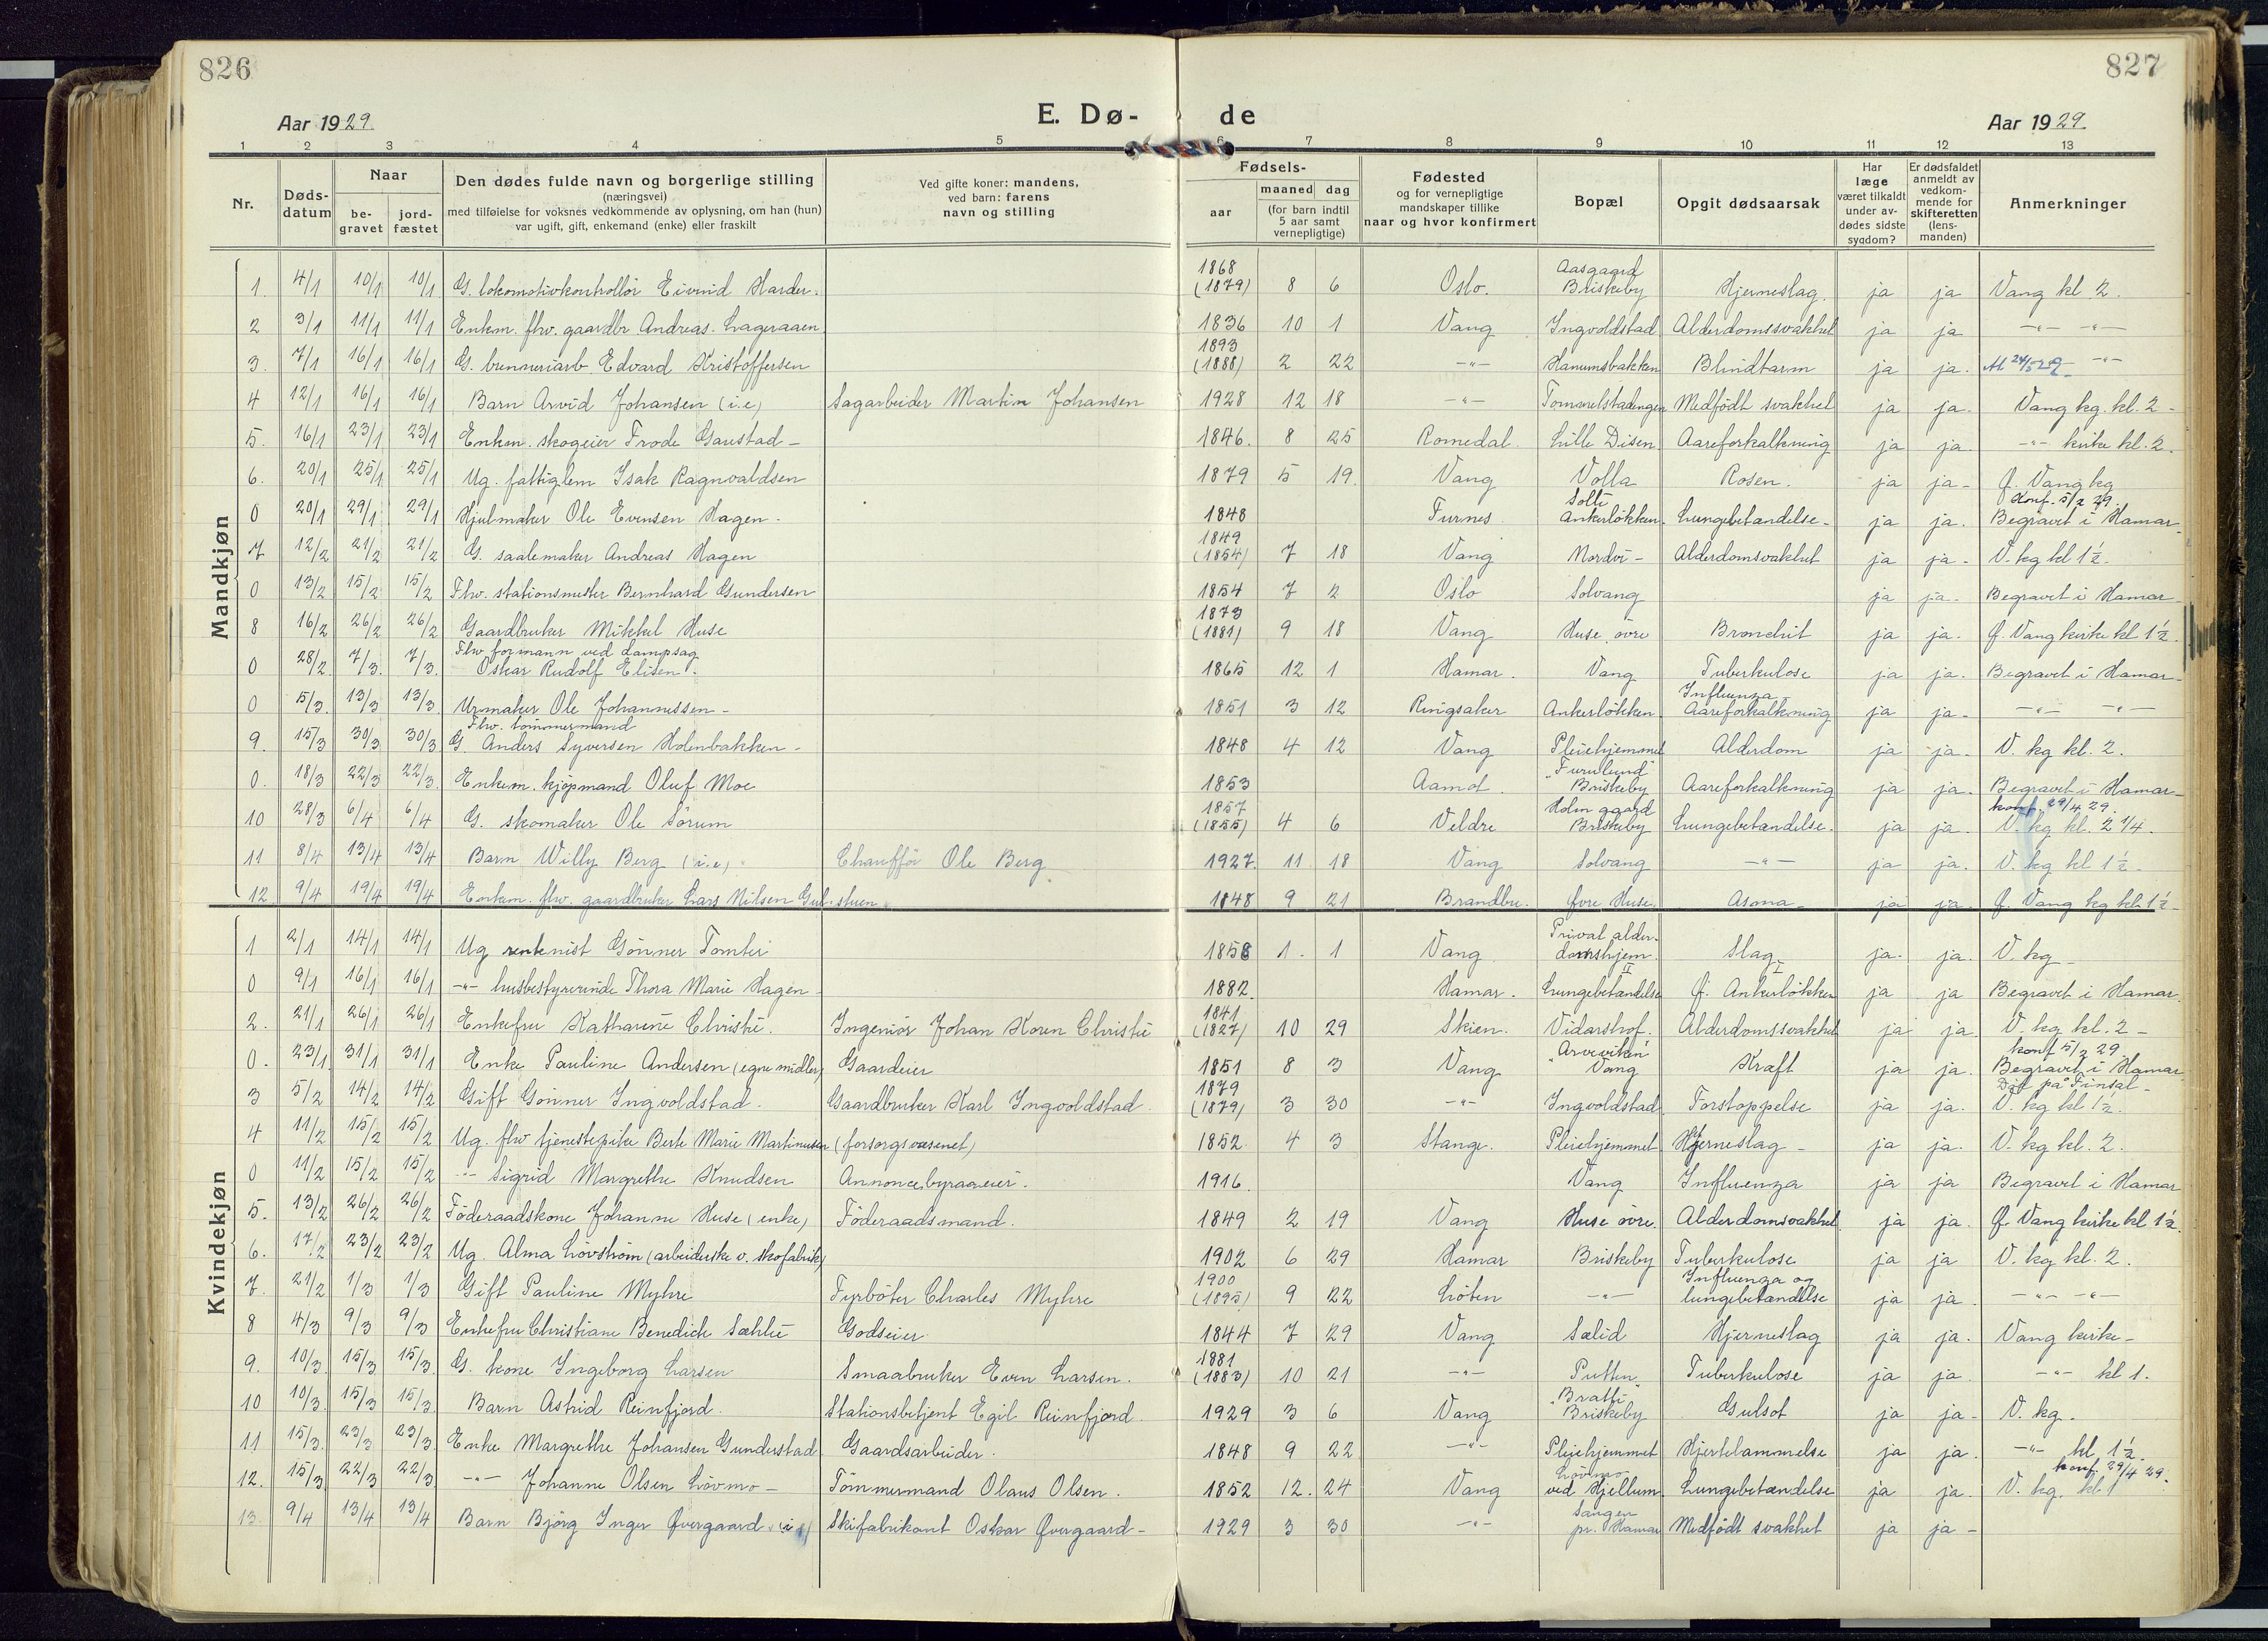 826
827
Aar 1929.
E. Dø-
de
Aar 1929.
1 2 3 4 5 6 7 8 9 10 11 12 13
Nr.
Døds-datum
Naar
be-gravet
jord-fæstet
Den dødes fulde navn og borgerlige stilling
(næringsvei)
med tilføielse for voksnes vedkommende av oplysning, om han (hun)
var ugift, gift, enkemand (enke) eller fraskilt
Ved gifte koner: mandens,
ved barn: farens
navn og stilling
Fødsels-
aar
maaned dag
(for barn indtil
5 aar samt
vernepligtige)
Fødested
og for vernepligtige
mandskaper tillike
naar og hvor konfirmert
Bopæl
Opgit dødsaarsak
Har
læge
været tilkaldt
under av-
dødes sidste
sygdom?
Er dødsfaldet
anmeldt av
vedkom-
mende for
skifteretten
(lens-
manden)
Anmerkninger
Mandkjøn
1. 4/1 10/1 10/1 G. lokomotivkontrollör Eivind Harder. 1868 (1879) 8 6 Oslo. Aasgaard Briskeby Hjerneslag. ja ja Vang kl. 2.
2 3/1 11/1 11/1 Enkm. fhv. gaardbr Andreas Lageraaen 1836 10 1 Vang Ingvoldstad Alderdomssvakhet ja ja -"- -"-
3. 7/1 16/1 16/1 G. brenneriarb. Edvard Kristoffersen 1893 (1888) 2 22 -"- Hanumsbakken Blindtarm ja ja. 24/5 29 -"-
4 12/1 16/1 16/1 Barn Arvid Johansen (i.e) Sagarbeider Martin Johansen 1928 12 18 -"- Tommelstadengen Medfödt svakhet ja ja. Vang kg. kl. 2-
5. 16/1 23/1 23/1 Enkm. skogeier Frode Gaustad- 1846. 8 25 Romedal. Lille Disen Aareforkalkning ja ja. -"- kirke kl. 2.
6. 20/1 25/1 25/1 Ug. fattiglem Isak Ragnvaldsen 1879 5 19. Vang Volla Rosen. ja ja- Ø. Vang kg
0 20/1 29/1 29/1 Hjulmaker Ole Evensen Hagen. 1848 Furnes Solli Ankerlökken. Lungebetændelse- ja ja. Konf. 5/2 29. Begravet i Hamar
7. 12/2 21/2 21/2 G. saalemaker Andreas Hagen 1849 (1854) 7 18 Vang Nordvi- Alderdomsvakhet ja ja- V. kg kl 1½.
0 13/2 15/2 15/2 Fhv. stationsmester Bernhard Gundersen 1854 7 2 Oslo Solvang ja ja. Begravet i Hamar
8 16/2 26/2 26/2 Gaardbruker Mikkel Huse 1873 (1881) 9 18 Vang Huse övre Bronchit ja ja. Ø. Vang kirke kl 1½.
0 28/2. 7/3. 7/3. Fhv formann ved dampsag Oskar Rudolf Elisen. 1865 12 1 Hamar. Vang Tuberkulose ja ja. Begravet i Hamar
0 5/3. 13/3 13/3 Urmaker Ole Johannessen- 1851 3 12 Ringsaker Ankerlökken Influenza Aareforkalkning ja ja- -"- -"-
9. 15/3 30/3 30/3 Fhv. tömmermand G. Anders Syversen Holenbakken- 1848 4 12 Vang Pleiehjemmet Alderdom ja ja- V. kg kl. 2.
0. 18/3 22/3 22/3. Enkem. kjøpmand Oluf Moe 1853 Aamot. "Furulund" Briskeby Aareforkalkning ja ja. Begravet i Hamar-
10 28/3 6/4 6/4 G. skomaker Ole Sörum 1857 (1855) 4 6 Veldre Holm gaard Briskeby Lungebetændelse. ja ja. konf. 29/4 29. V. kg kl. 2¼.
11 8/4 13/4 13/4 Barn Willy Berg (i.e) Chauffför Ole Berg 1927. 11. 18 Vang Solvang -"- ja ja. V. kg kl 1½-
12 9/4 19/4 19/4 Enkem. fhv. gaardbruker Lars Nilsen Gulstuen 1848 9 21 Brandbu. Övre Huse. Asma- ja ja. Ø. Vang kg kl 1½-
Kvindekjøn
1 2/1 14/1 14/1 Ug rentenist Gönner Tomter 1858 1. 1 Vang Privat alderdomshjem. Slag ja. ja. V. kg
0 9/1 16/1 16/1 -"- husbestyrerinde Thora Marie Hagen 1882. Hamar. II Lungebetændelse I Ø. Ankerlökken ja ja Begravet i Hamar.
2. 21/1 26/1 26/1 Enkefru Katharine Christie. Ingeniör Johan Koren Christie 1841 (1827) 10 29 Skien. Vidarshof. Alderdomssvakhet ja ja. V. kg kl. 2-
0. 23/1 31/1 31/1 Enke Pauline Andersen (egne midler) Gaardeier 1851 8 3 Vang "Arveviken" Vang Kræft ja ja. konf 5/2 29 Begravet i Hamar
3 5/2 14/2 14/2 Gift Gönner Ingvoldstad. Gaardbruker Karl Ingvoldstad. 1879 (1879) 3 30 -"- Ingvoldstad Forstoppelse ja ja. Död på Finsal- V. kg kl 1½.
4 11/2 15/2 15/2 Ug. fhv tjenestepike Berte Marie Martinusen (forsorgsvæsenet) 1852. 4 3 Stange. Pleiehjemmet Hjerneslag- ja ja. V. kg kl. 2.
0 11/2 15/2 15/2 -"- Sigrid Margrethe Knudsen Annoncebyraaeier. 1916. Vang Influenza ja ja Begravet i Hamar
5. 13/2 26/2 26/2 Föderaadskone Johanne Huse (enke) Föderaadsmand. 1849 2 19 Vang Huse övre. Alderdomsvakhet ja ja. Ø Vang kirke kl 1½.
6. 17/2 23/2 23/2 Ug. Alma Lövström (arbeiderske v. skofabrik) 1902 6 29 Hamar Briskeby Tuberkulose ja ja V. kg kl. 2.
7. 21/2 1/3 1/3 Gift Pauline Myhre Fyrböter Charles Myhre 1900 (1895) 9 22 Löten -"- Influenza og lungebetændelse ja ja. -"- -"-
8 4/3 9/3 9/3 Enkefru Christiane Benedicte Sæhlie Godseier 1844 7 29 Vang Sælid Hjerneslag ja ja. Vang kirke-
9. 10/3. 15/3. 15/3. G. kone Ingeborg Larsen Smaabruker Even Larsen. 1881 (1883) 10 21 -"- Putten Tuberkulose ja ja. -"- kl 1.
10 10/3. 15/3 15/3. Barn Astrid Reinfjord. Stationsbetjent Egil Reinfjord 1929 3 6 Vang "Bratli" Briskeby Gulsot ja ja- V. kg.
11 15/3. 23/3 23/3. Enke Margrethe Johansen Gunderstad Gaardsarbeider. 1848 9 22 -"- Pleiehjemmet Hjertelammelse ja ja. -"- kl 1½.
12. 15/3. 22/3 22/3 -"- Johanne Olsen Lövmo- Tömmermand Olaus Olsen. 1852 12. 24 Vang Lövmo ved Hjellum Lungebetændelse ja ja. konf 29/4 29. V. kg. kl. 1
13. 9/4 13/4 13/4 Barn Björg Inger Øvergaard (i e) Skifabrikant Oskar Øvergaard- 1929 3 30 -"- Sangen pr. Hamar Medfödt svakhet ja ja-